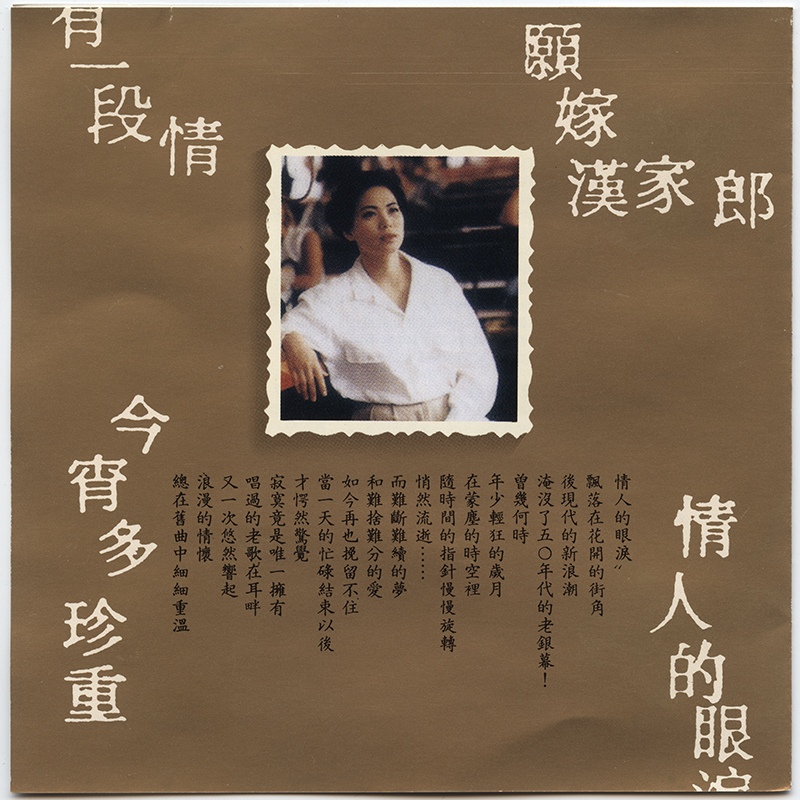 有一段情
願嫁漢家郎
今宵多珍重
情人的眼淚
情人的眼淚〞
飄落在花開的街角
後現代的新浪潮
淹沒了五〇年代的老銀幕！
曾幾何時
年少輕狂的歲月
在蒙塵的時空裡
隨時間的指針慢慢旋轉
悄然流逝……
而難斷難續的夢
和難捨難分的愛
如今再也挽留不住
當一天的忙碌結束以後
才愕然驚覺
寂寞竟是唯一擁有
唱過的老歌在耳畔
又一次悠然響起
浪漫的情懷
總在舊曲中細細重溫